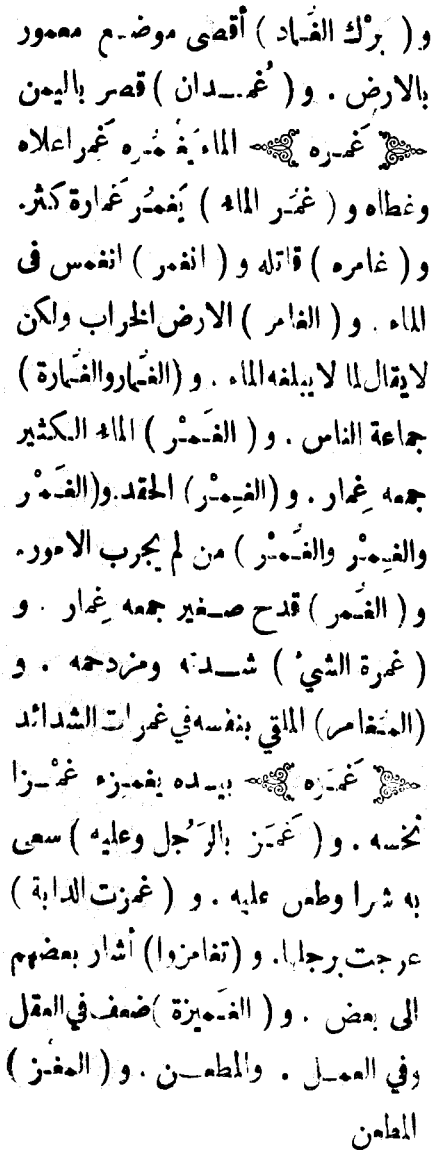 و( بَرْك الغُماد ) أقصى موضع معمور
بالارض . و( غُمدان ) قصر باليمن
غَمَره الماء يَغْمُره غَمْرا علاه
وغطاه و( غمُر الماء ) يَغمُر غَمارة كثر.
و( غامره ) قاتله و( انغمر ) انغمس فى
الماء . و( الغامر ) الارض الخراب ولكن
لا يقال لما لا يبلغه الماء . و(الغُمار والغُمارة )
جماعة الناس . و( الغَمْر ) الماء الكثير
جمعه غِمار . و(الغِمْر) الحقد.و(الغَمْر
والغِمْر والغُمْر ) من لم يجرب الامور.
و( الغُمَر ) قدح صغير جمعه غِمار . و
( غمرة الشيء ) شدته ومزدحمه . و
(المُغامر) الملقي بنفسه في غمرات الشدائد
غَمَزه بيده يغمِزه غَمْزا
نخسه . و( غَمَز بالرَّجُل وعليه ) سعى
به شرا وطعن عليه . و ( غمزت الدابة )
عرجت برجلها. و (تغامزوا) أشار بعضهم
الى بعض . و( الغَميزة )ضعف في العقل
وفي العمل . والمطعن . و( المغمَز )
المطعن